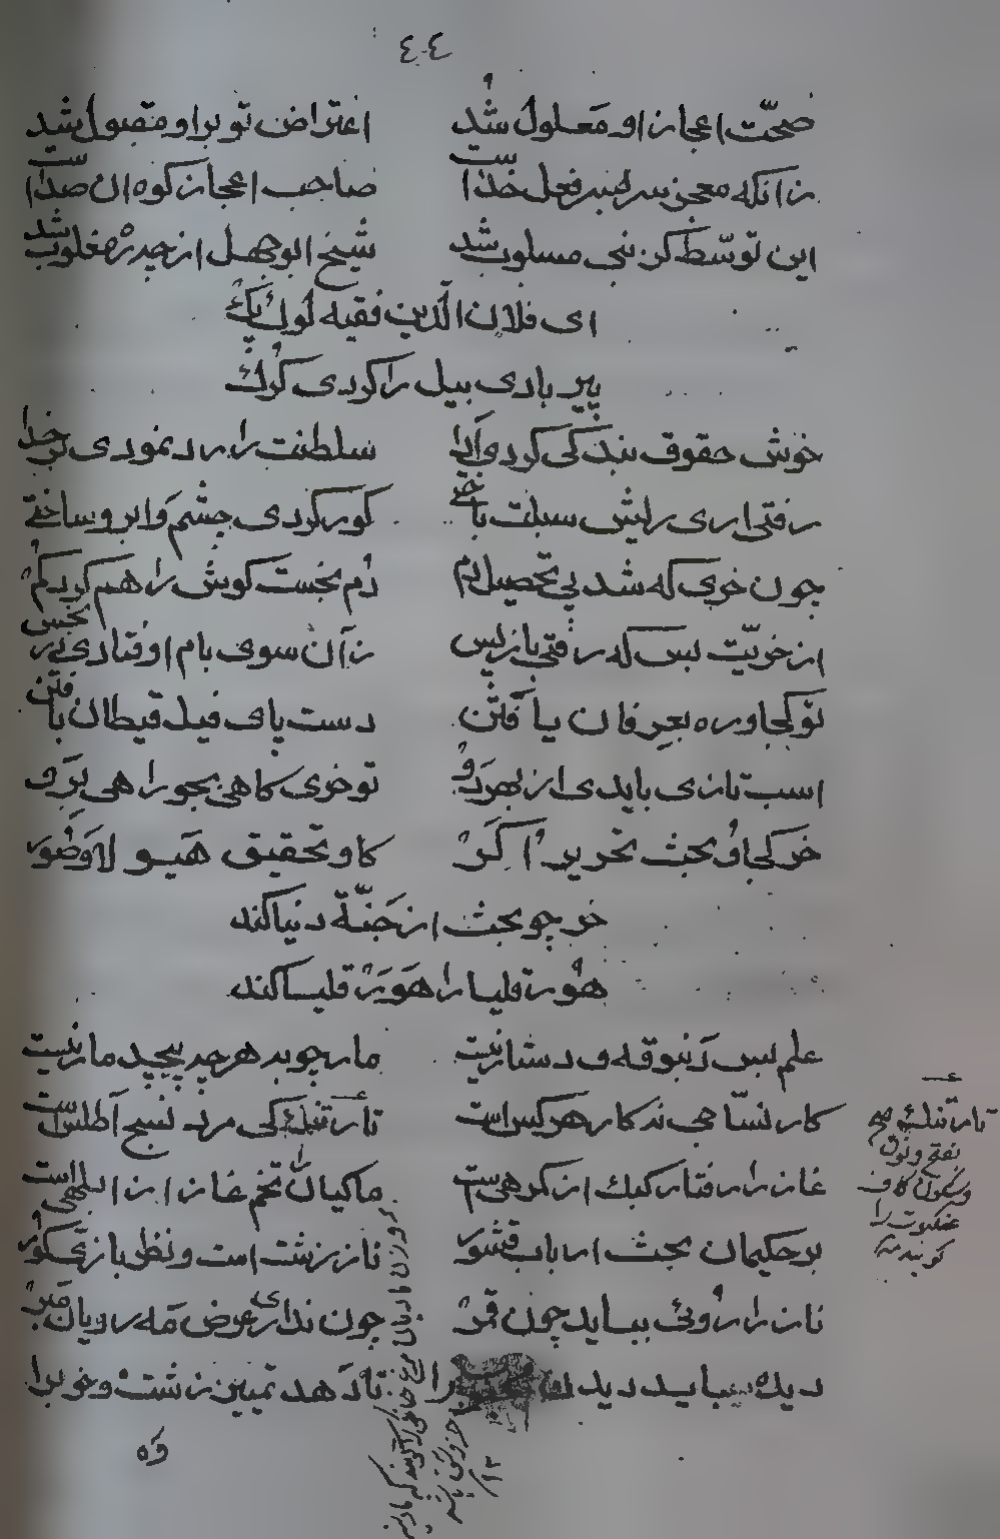 ٤٠٤
صحّت اعجاز او معلول شد اعتراض تو براو مقبول شد
زانکه معجز سربسر فعل خداست صاحب اعجاز کوه ان صداست
این توسّط کز نبی مسلوب شد شیخ ابوجهل ازچه رُه مغلوب شد
ای فلان الدین فقیه لوك پك
پیر بادی بیل را کردی کرك
خوش حقوق بندکی کردی ادا سلطنت را رد نمودی بر خدا
رفتی اری ریش سبلت باختی کور کردی چشم وابرو ساختی
چون خری که شد پی تحصیل دم دُم نجست کوش را هم کرد کم
از خریّت بس که رفتی باز پس زان سوی بام اوفتادی ای نجس
تو کجا وره بعرفان یافتن دست پای فیل قیطان بافتن
اسب تازی بایدی از بهر دو تو خری کاهی بجو راهی برو
خر کجا و بحث تحریر اکر کاو و تحقیق هیو لا وصور
خر چو بحث از جنّة دنیا کند
هورقلیا را هورقلیسا کند
علم بس ذیبو قه و دستار نیست مار چوبه هرچه پیچد مار نیست
کار نسّاجی نه کار هر کس است تارتنك کی مرد نسج اطلس است
غاز را رفتار کبك از کمرهی است ماکیان را تخم غاز از ابلهی است
بر حکیمان بحث ارباب قشور ناز زشت است و نظر بازی کور
ناز را روئی بباید چون قمر چون نداری عرض مه رویان مبر
دیده بباید دید را تا دهد تمییز زشت و خوبرا
تارتنك
بفتح و نون
وسکون کاف
عنکبوت را
کویند منه
١٢
وه